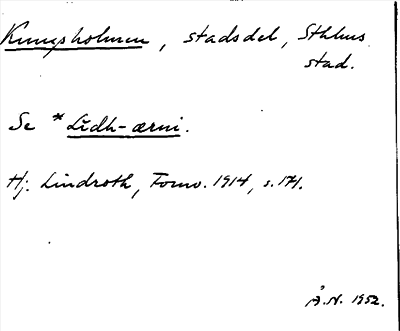 Kungsholmen, stadsdel, Sthlms
stad.
Se *Līdh-ærni.
Hj. Lindroth, Fornv. 1914, s. 171.
Å.N. 1952.